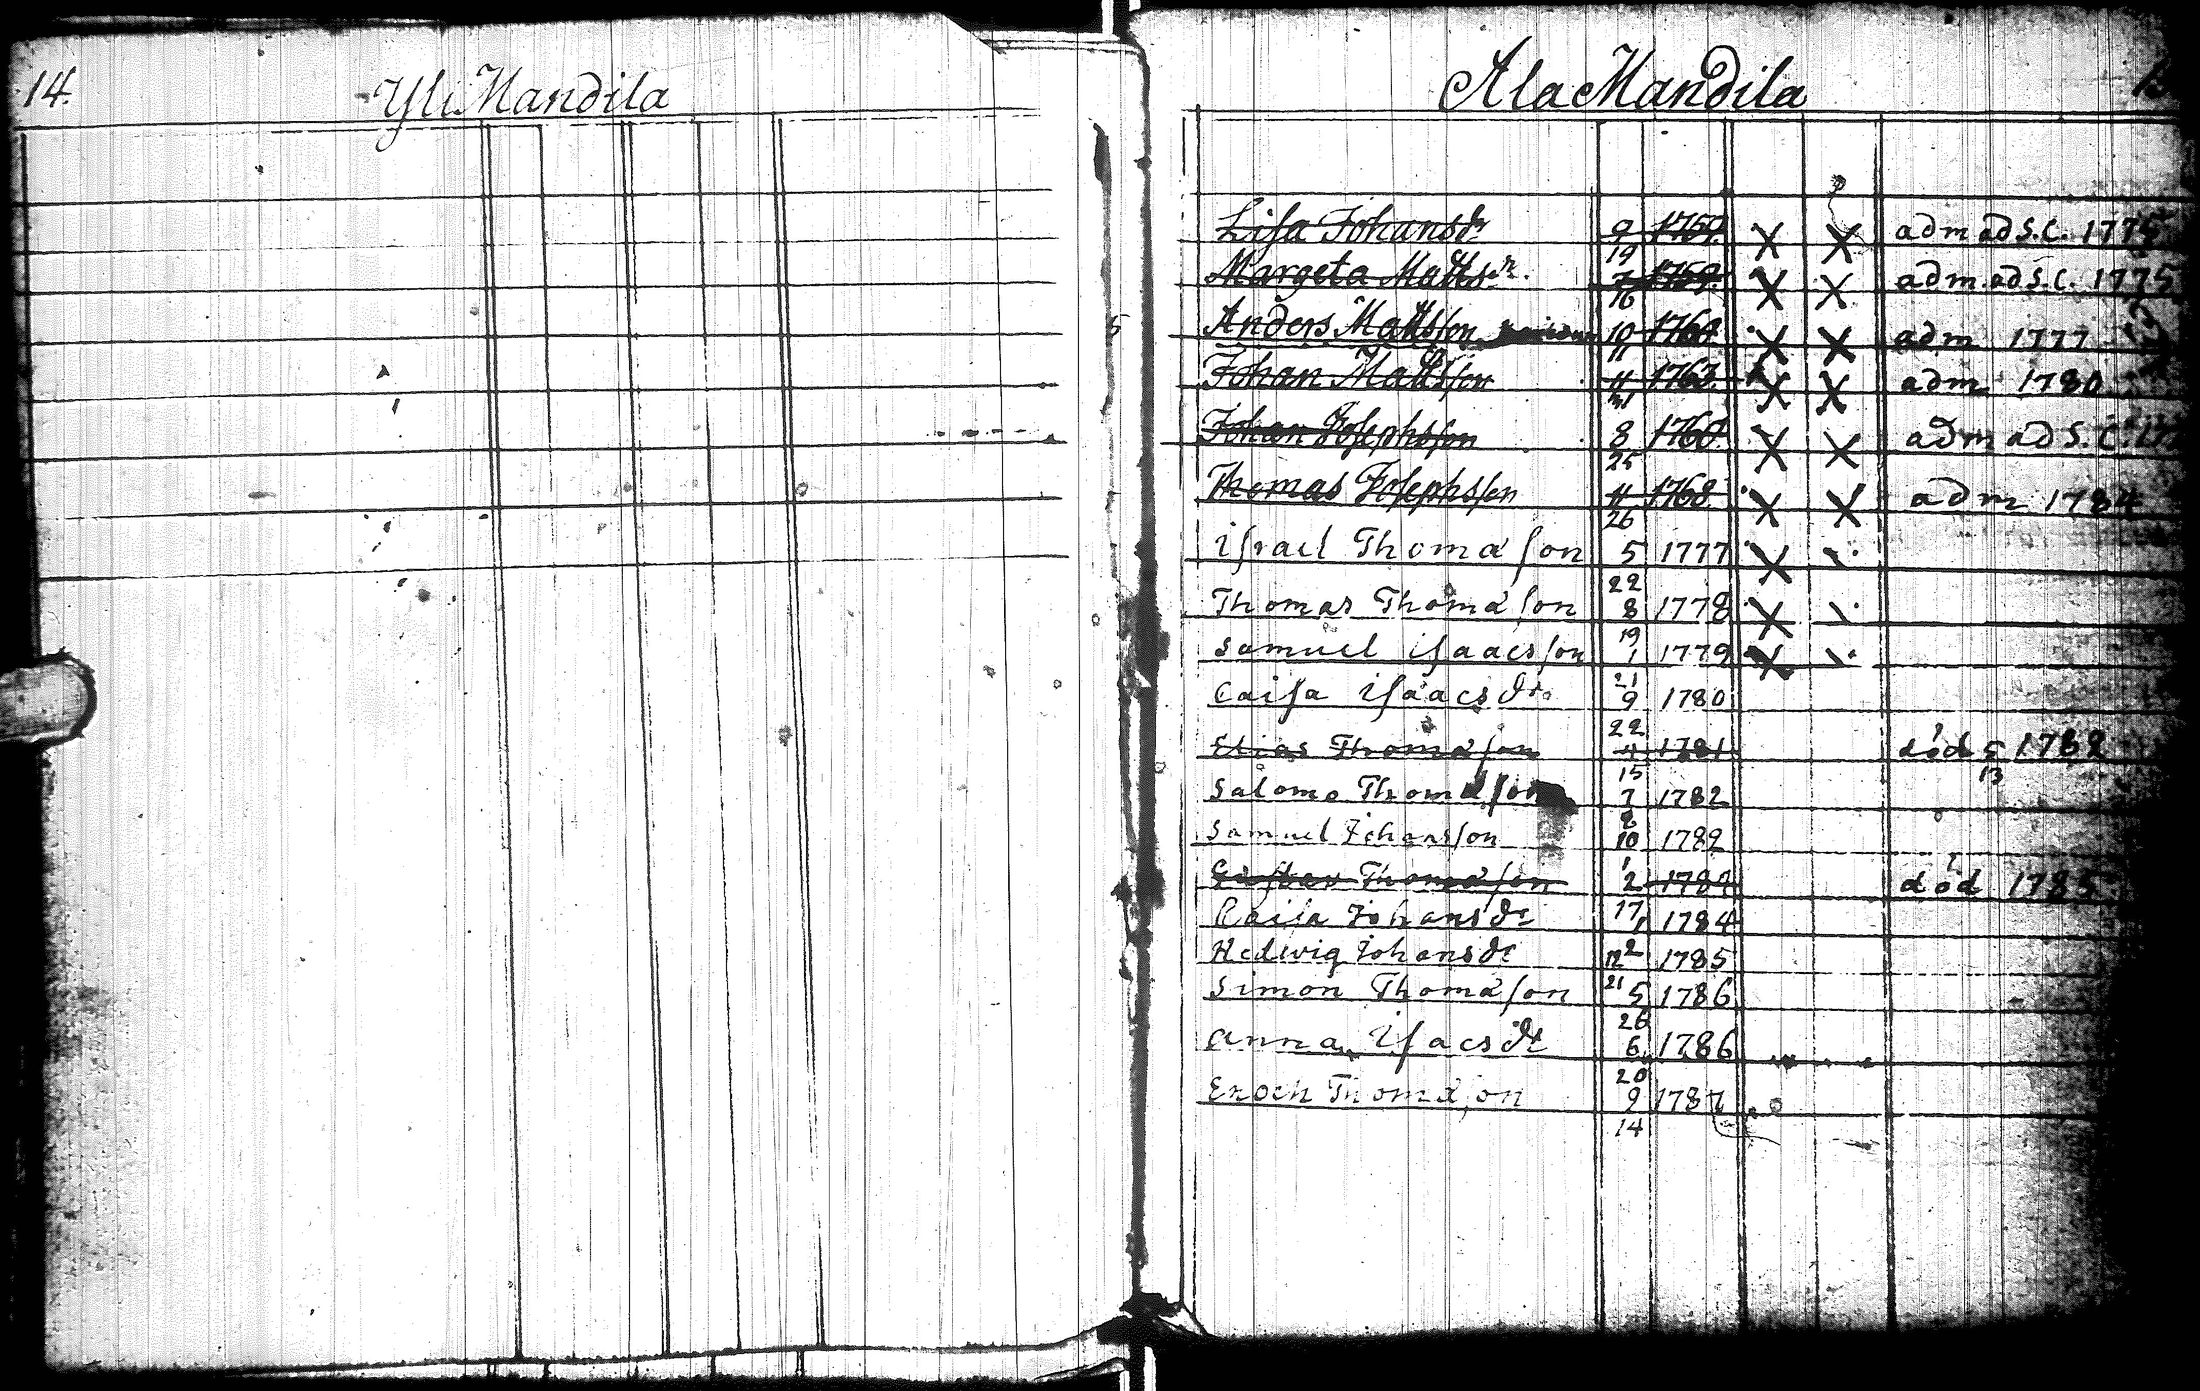 14.
Yli Mandila
Ala Mandila
Lisa Johansdr 9 1759 adm ad S.C. 1775
19
Margeta Mattsdr. 7 1759 adm. ad S.C. 1775
16
Anders Mattsson 10 1764 adm 1777
11
Johan Mattsson 11 1763 adm 1780
31
Johan Josephsson 8 1760 adm ad S.C.
25
Thomas Josephsson 11 1768 adm 1784
26
Israel Thomasson 5 1777
22
Thomas Thomasson 8 1778
19
Samuel Isaacsson 1 1779
21
Caisa Isaacsdr. 9 1780
22
Elias Thomasson 11 1781 död 5 1782
15 13
Salomo Thomasson 7 1782
8
Samuel Johansson 10 1782
1
Gustav Thomasson 2 död 1785
17
Caisa Johansdr 1 1784
2
Hedwig Johansdr 12 1785
21
Simon Thomasson 5 1786
26
Anna Isacsdr 6 1786
20
Enoch Thomasson 9 1787
14